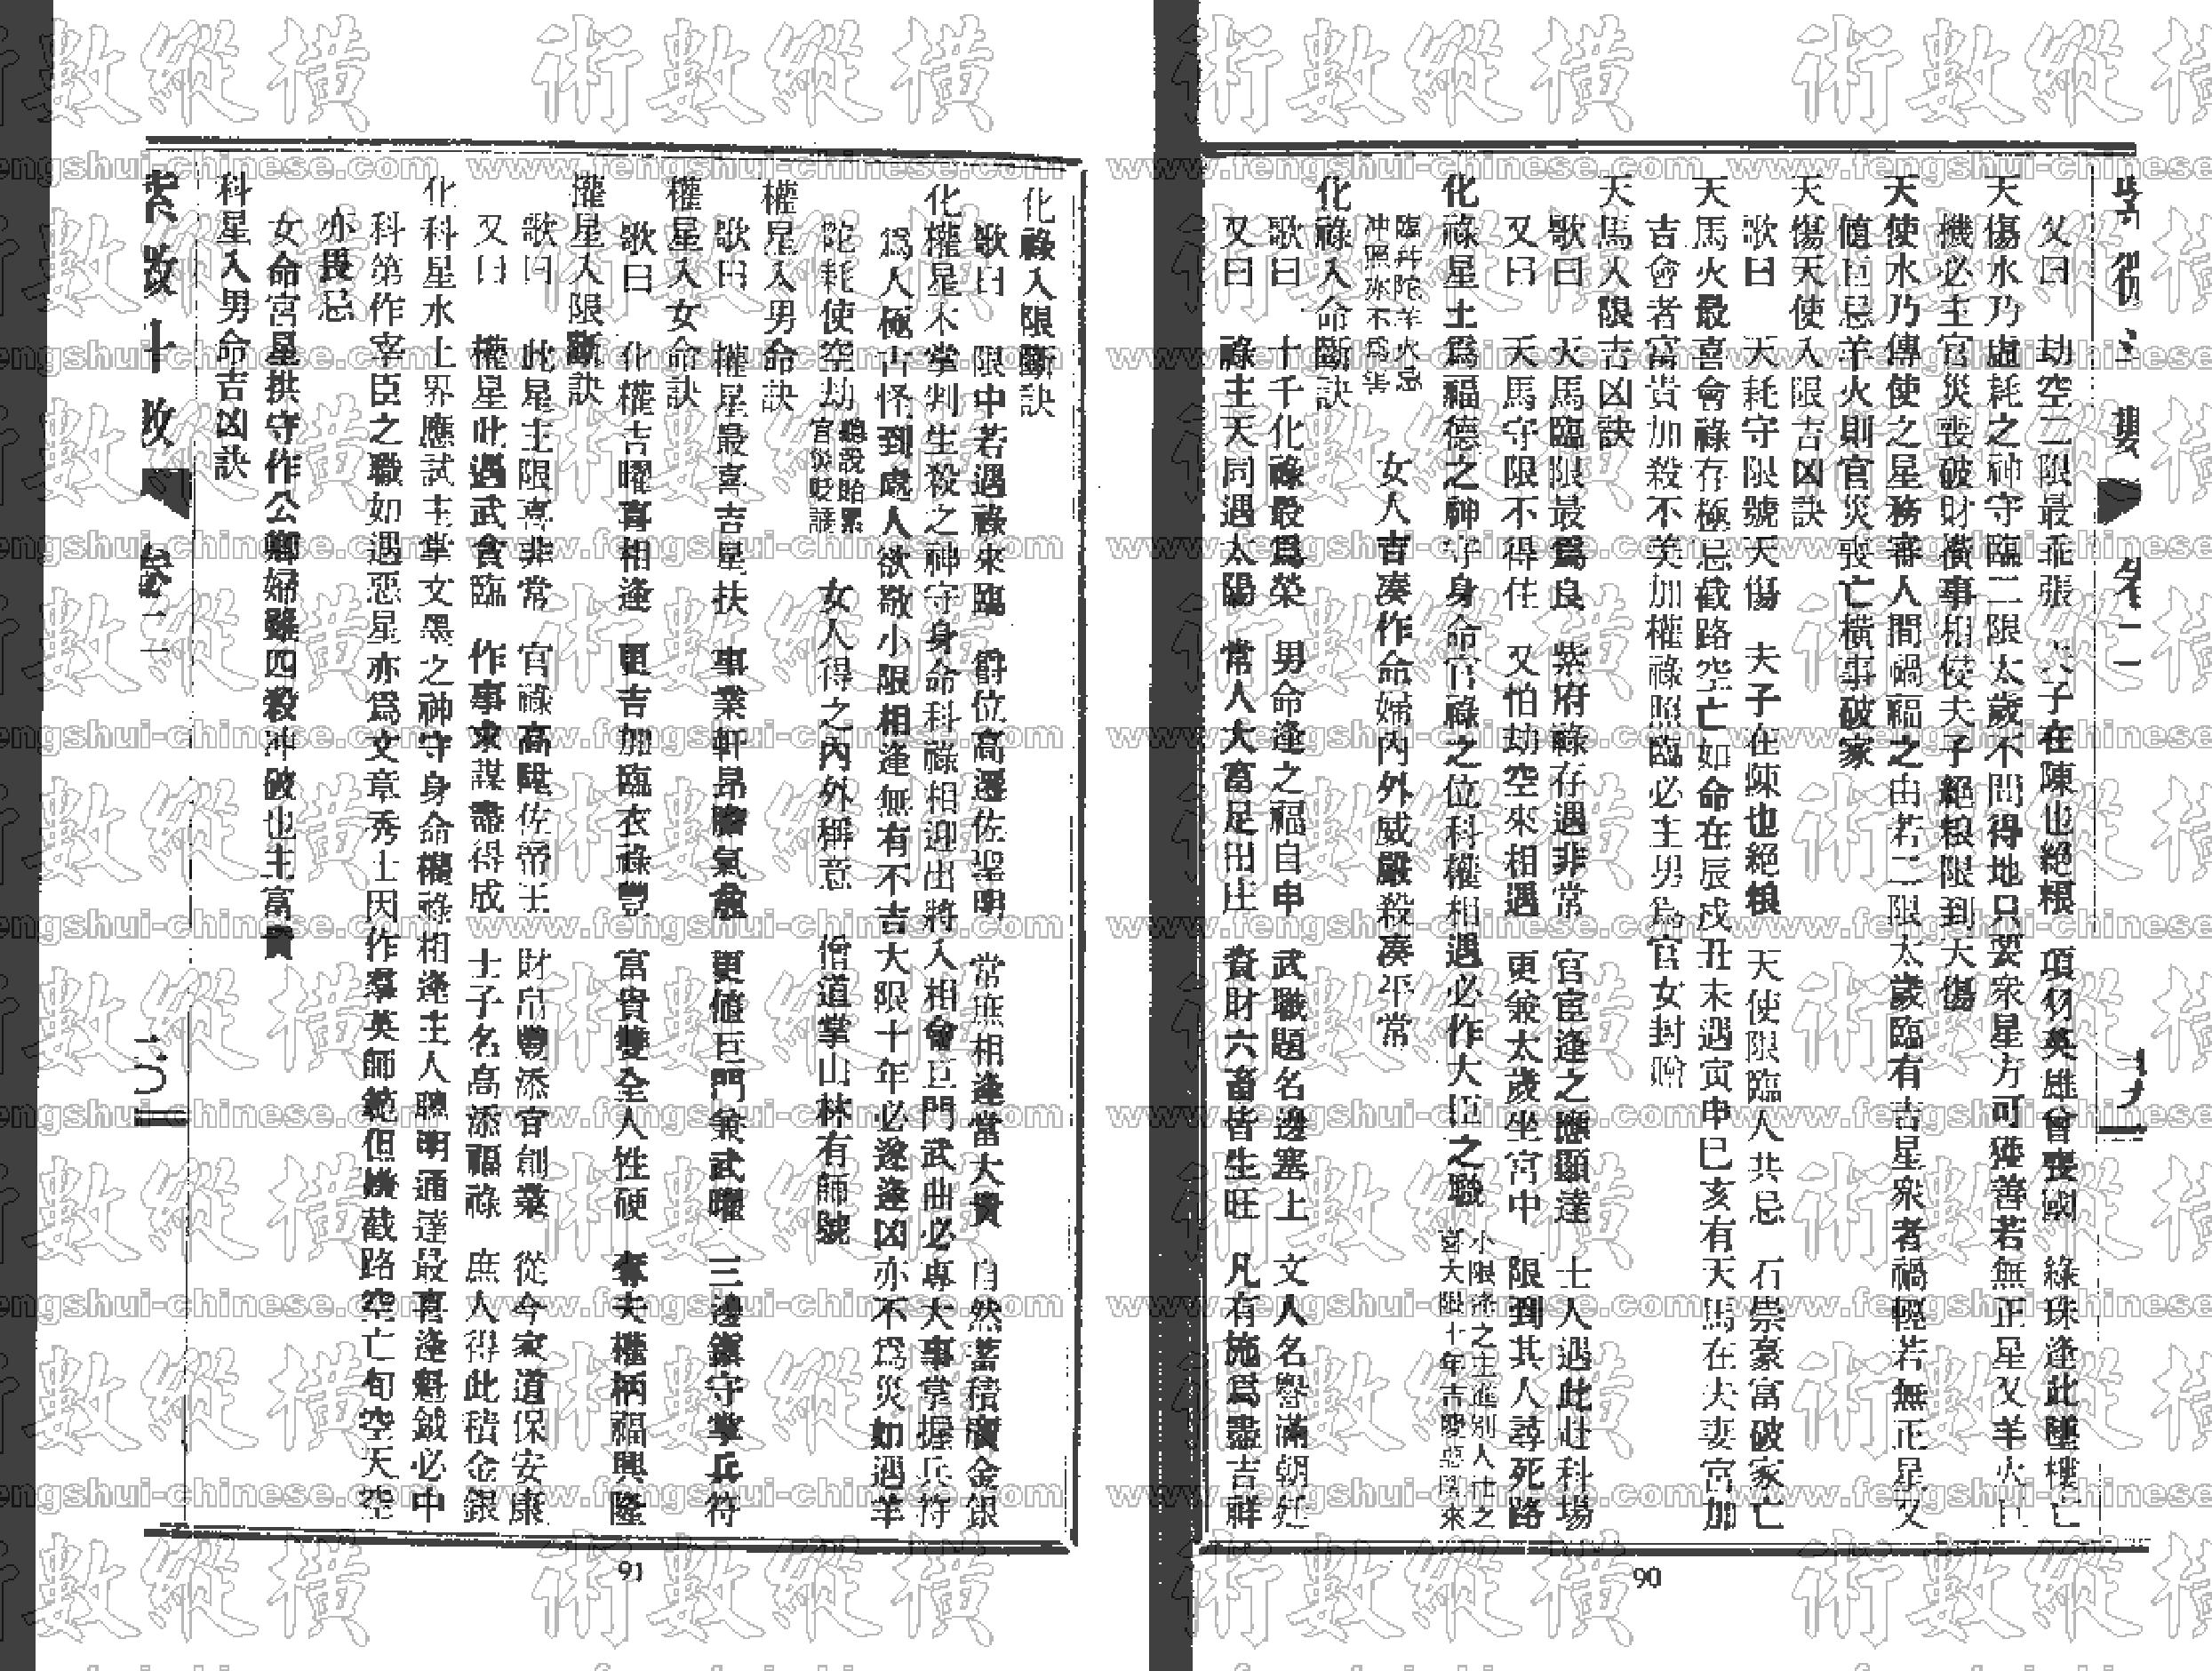 又曰　劫空二限最乖張　夫子在陳也絕糧　項羽英雄曾喪國　綠珠逢此墜樓亡
天傷水乃虛耗之神守臨二限太歲不問得地只要衆星方可獲善若無正星又羊火巨
機必主官災喪破財橫事相侵夫子絕糧限到天傷
天使水乃傳使之星務審人間禍福之由若二限太歲臨有吉星衆者禍輕若無正星又
值巨忌羊火則官災喪亡橫事破家
天傷天使入限吉凶訣
歌曰　天耗守限號天傷　夫子在陳也絕糧　天使限臨人共忌　石崇豪富破家亡
天馬火最喜會祿存極忌截路空亡如命在辰戌丑未遇寅申巳亥有天馬在夫妻宮加
吉會者富貴加殺不美加權祿照臨必主男為官女封贈
天馬入限吉凶訣
歌曰　天馬臨限最為良　紫府祿存遇非常　官宦逢之應顯達　士人遇此赴科場
又曰　天馬守限不得住　又怕劫空來相遇　更兼太歲坐宮中　限到其人尋死路
化祿星土為福德之神守身命官祿之位科權相遇必作大臣之職
小限逢之主進別人仕之
喜大限十年吉慶惡限來
臨幷陀羊火忌
冲照亦不為害
女人吉湊作命婦內外威嚴殺湊平常
化祿入命斷訣
歌曰　十千化祿最為榮　男命逢之福自申　武職題名邊塞上　文人名譽滿朝廷
又曰　祿主天同遇太陽　常人大富足田庄　資財六畜皆生旺　凡有施為盡吉祥
90
化祿入限斷訣
歌曰　限中若遇祿來臨　爵位高遷佐聖明　常庶相逢當大貴　自然蓄積廣金銀
化權星木掌判生殺之神守身命科祿相迎出將入相會巨門武曲必專大事掌握兵符
為人極古怪到處人欲敬小限相逢無有不吉大限十年必遂逢凶亦不為災如遇羊
陀耗使空劫
聽說貽累
官災貶謫
女人得之內外稱意　僧道掌山林有師號
權星入男命訣
歌曰　權星最喜吉星扶　事業軒昂膽氣麄　更值巨門兼武曜　三邊鎮守掌兵符
權星入女命訣
歌曰　化權吉曜喜相逢　更吉加臨衣祿豐　富貴雙全人性硬　奪夫權柄福興隆
權星入限斷訣
歌曰　此星主限喜非常　官祿高陞佐帝王　財帛豐添宜創業　從今家道保安康
又曰　權星此遇武貪臨　作事求謀盡得成　士子名高添福祿　庶人得此積金銀
化科星水上界應試主掌文墨之神守身命權祿相逢主人聰明通達最喜逢魁鉞必中
科第作宰臣之職如遇惡星亦為文章秀士因作羣英師範但嫌截路空亡旬空天空
亦畏忌
女命宮星拱守作公卿婦雖四殺冲破也主富貴
科星入男命吉凶訣
91